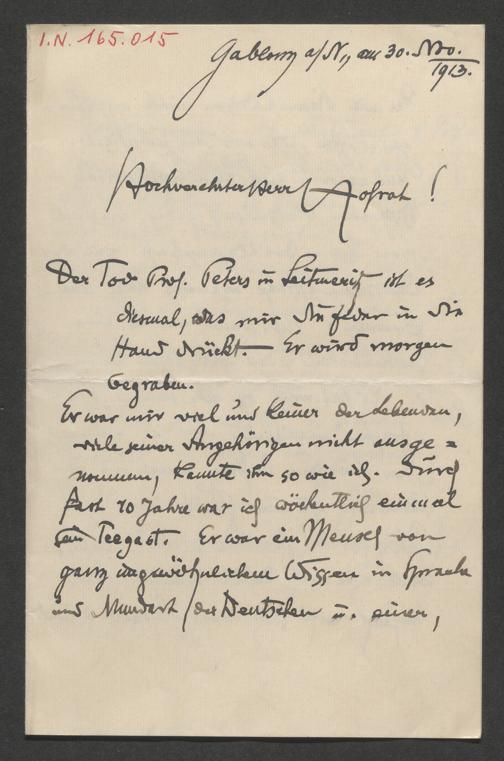 I.N. 165.015
Gablonz a/N., am 30. Nov.
1913.
Hochverehrter Herr Hofrat!
Der Tod Prof. Peters in Leitmeritz ist es
diesmal, was mir die Feder in die
Hand drückt. Er wird morgen
begraben.
Er war mir viel und keiner der Lebenden,
viele seiner Angehörigen nicht ausge=
nommen, kannte ihn so wie ich. Durch
fast 10 Jahre war ich wöchentlich einmal
sein Teegast. Er war ein Mensch von
ganz ungewöhnlichem Wissen in Sprache
und Mundart der Deutschen u. einer,